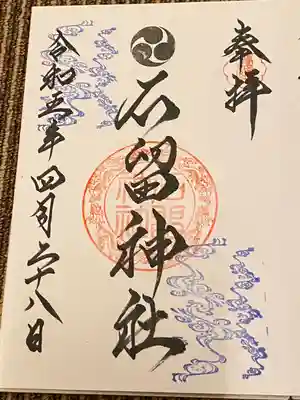 奉拝
石留神社
令和五年四月二十八日